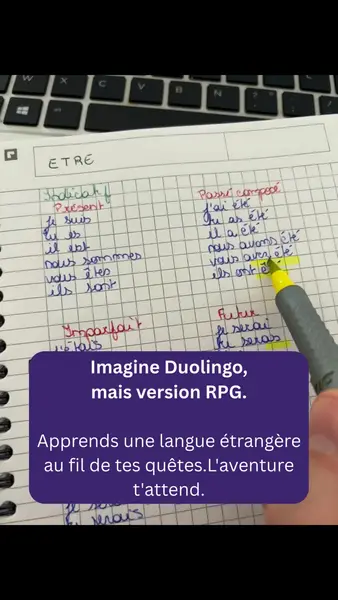 ETRE
Indicatif
Présent
je suis
tu es
il est
nous sommes
vous êtes
ils sont
Passé composé
j'ai été
tu as été
il a été
nous avons été
vous avez été
ils ont été
Imparfait
j'étais
Futur
je serai
tu seras
Imagine Duolingo,
mais version RPG.
Apprends une langue étrangère
au fil de tes quêtes.L'aventure
t'attend.
je serais